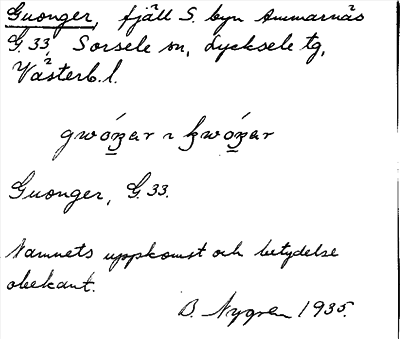 Guonger, fjäll S. byn Ammarnäs
G. 33, Sorsele sn, Lycksele tg,
Västerb. l.
Guonger, G. 33.
Namnets uppkomst och betydelse
obekant.
B. Nygren 1935.